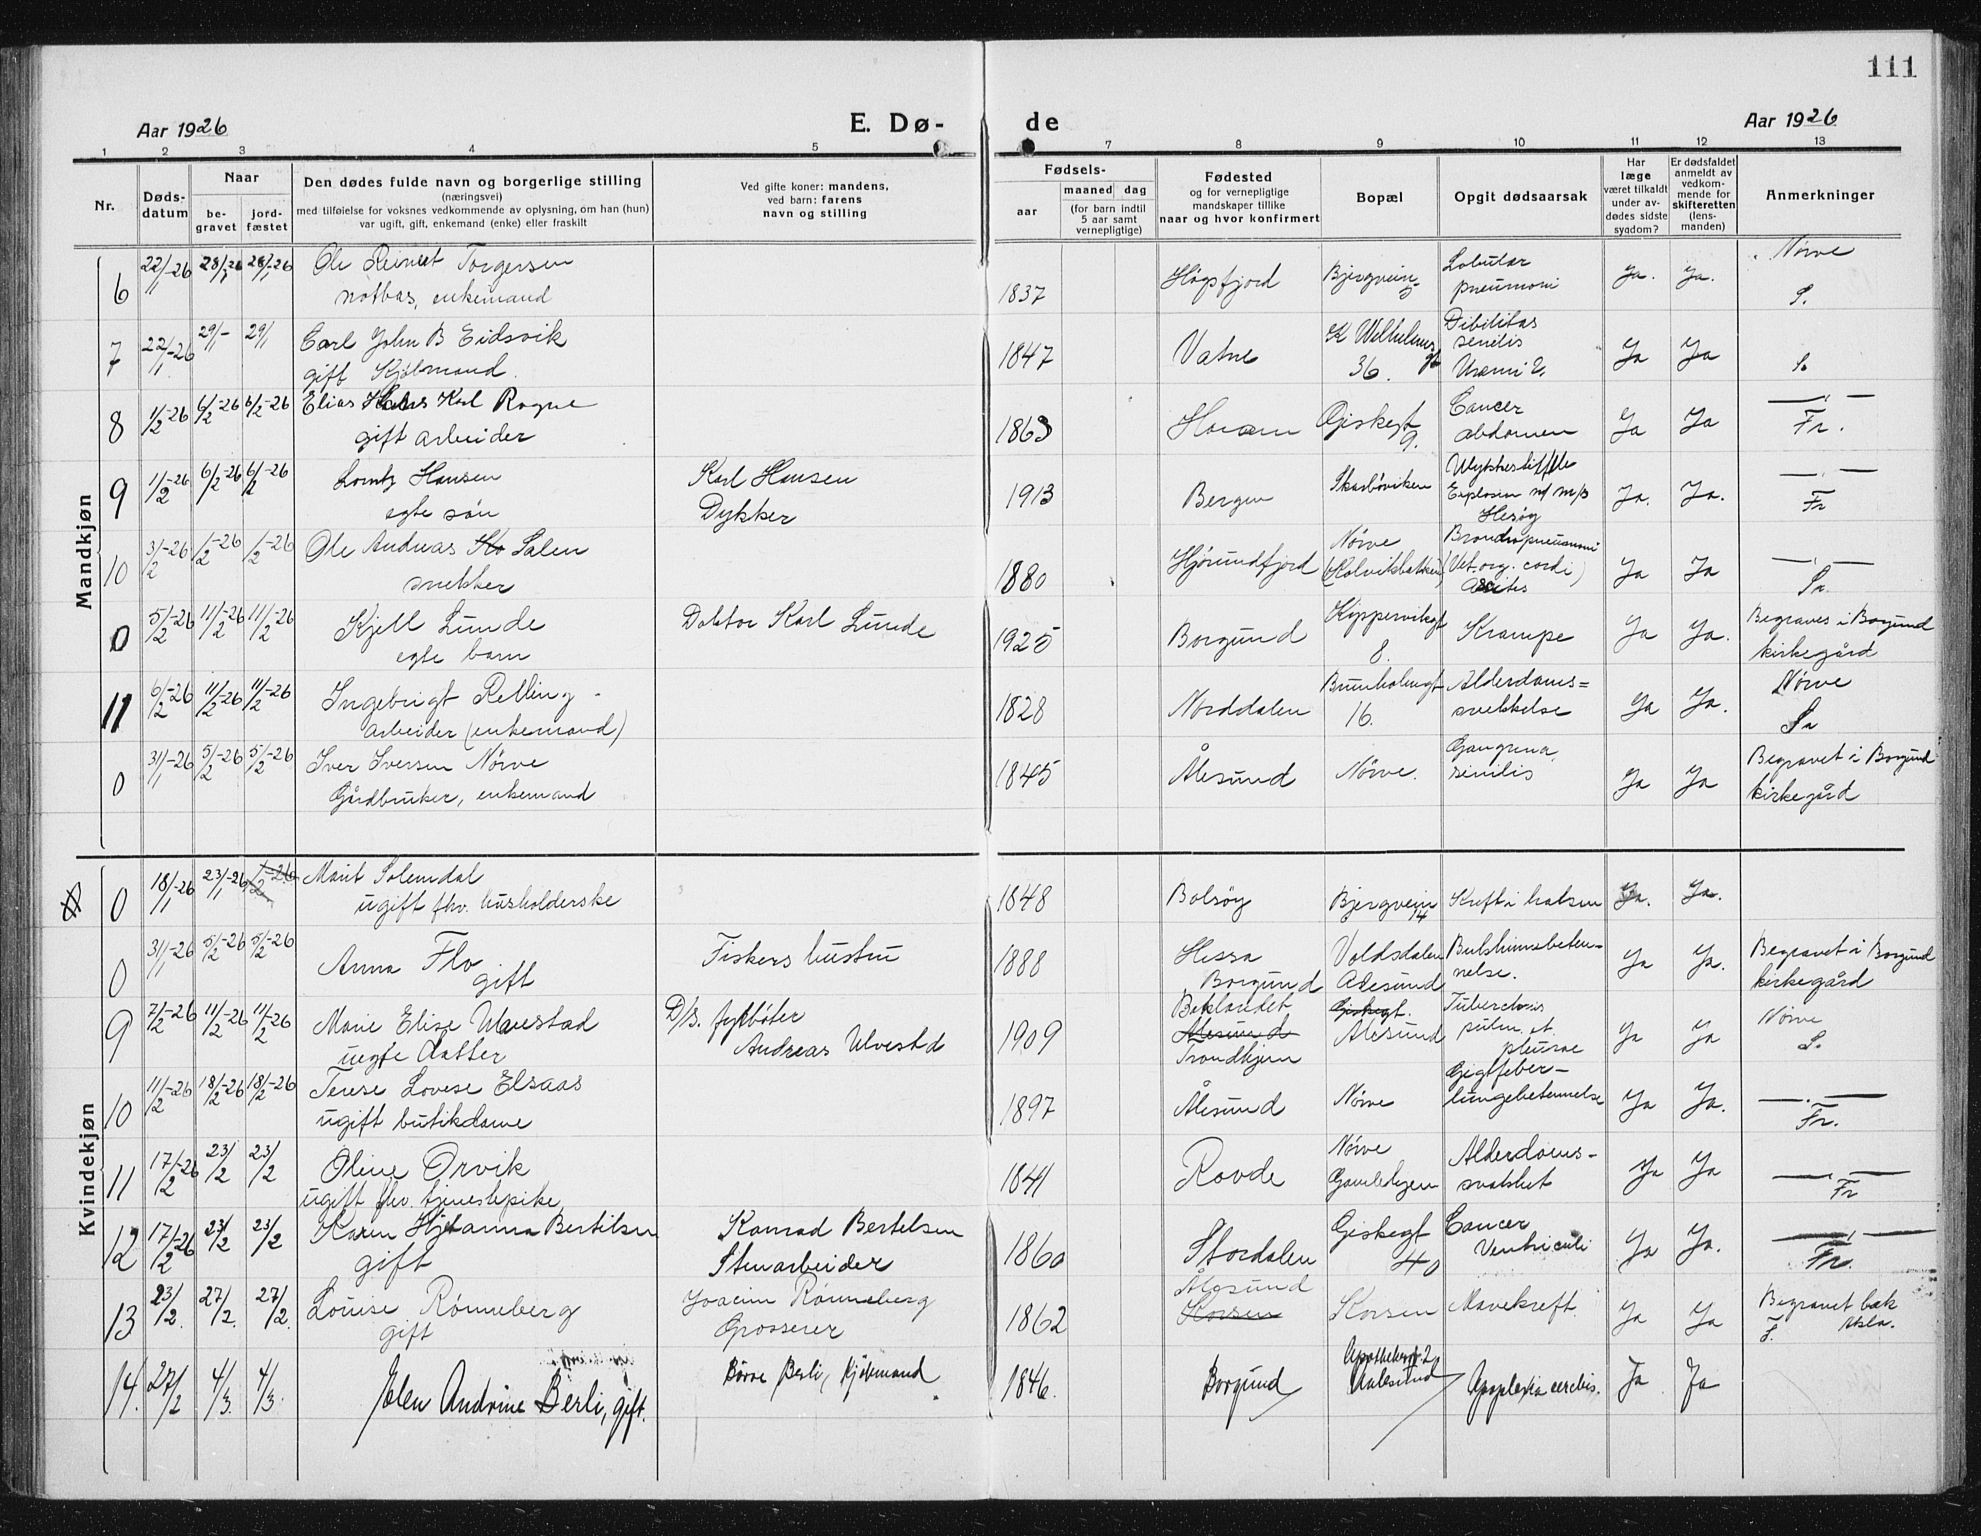 111
Aar 1926
E. Dø-
de
Aar 1926
1 2 3 4 5 7 8 9 10 11 12 13
Nr.
Døds-
datum
Naar
be-
gravet
jord-
fæstet
Den dødes fulde navn og borgerlige stilling
(næringsvei)
med tilføielse for voksnes vedkommende av oplysning, om han (hun)
var ugift, gift, enkemand (enke) eller fraskilt
Ved gifte koner: mandens,
ved barn: farens
navn og stilling
Fødsels-
aar
maaned dag
(for barn indtil
5 aar samt
vernepligtige)
Fødested
og for vernepligtige
mandskaper tillike
naar og hvor konfirmert
Bopæl
Opgit dødsaarsak
Har
læge
været tilkaldt
under av-
dødes sidste
sygdom?
Er dødsfaldet
anmeldt av
vedkom-
mende for
skifteretten
(lens-
manden)
Anmerkninger
Mandkjøn
6 22/1-26 28/1-26 28/1-26 Ole Reinert Torgersen
notbas, enkemand
1837 Høgsfjord Bjergvein 5 Lobulær
pneumoni Ja. Ja. Nørve
S.
7 22/1-26 29/1- 29/1 Carl John B Eidsvik
gift Kjøbmand.
1847 Vatne K Wilhelms gt
36. Debilitas
senilis
Uræmi Ja Ja S.
8 1/2-26 6/2-26 6/2-26 Elias Karl Rogne
gift arbeider
1863 Haram Giskegt
9. Cancer
abdomen Ja Ja — " —
Fr.
9 1/2-26 6/2-26 6/2-26 Lorntz Hansen
egte søn
Karl Hansen
Dykker
1913 Bergen Skarbøviken Ulykkestilfelle
Explosion m/ m/s
Hesøy Ja. Ja. — " —
Fr
10 3/2-26 1/2-26 1/2-26 Ole Andreas Ko Salen
snekker
1880 Hjørundfjord Nørve
(Kolviksbakken) Bronchopneumoni
(Vet. org. cordi)
Ascites Ja Ja — " —
Sa.
0 5/2-26 11/2-26 11/2-26 Kjell Lunde
egte barn
Doktor Karl Lunde
1925 Borgund Kippervikgt
8. Krampe Ja Ja. Begraves i Borgund
kirkegård
11 6/2-26 11/2-26 11/2-26 Ingebrigt Relling
arbeider (enkemand)
1828 Norddalen Brunholmgt
16. Alderdoms=
svekkelse Ja Ja. Nørve
Sa
0 31/1-26 5/2-26 5/2-26 Iver Iversen Nørve
Gårdbruker, enkemand
1845 Ålesund Nørve. Gangrena
senilis Ja Ja Begravet i Borgund
kirkegård
Kvindekjøn
0 18/1-26 23/1-26 1/2-26 Marit Solemdal
ugift fhv. husholderske
1848 Bolsøy Bjergvein
14 Kreft i halsen Ja. Ja.
0 31/1-26 5/2-26 5/2-26 Anna Flo
gift
Fiskers hustru
1888 Hessa
Borgund Voldsdalen
Ålesund Bukhinnebeten-
nelse. Ja Ja. Begravet i Borgund
kirkegård
9 7/2-26 11/2-26 11/2-26 Marie Elise Ulvestad
uegte datter
D/S. fyrbøter
Andreas Ulvestad
1909 Baklandet
Ålesund
Trondhjem Giskegt.
Ålesund Tuberculosis
pulm. et.
pleurae Ja Ja Nørve
S.
10 11/2-26 18/2-26 18/2-26 Terese Lovise Elsaas
ugift butikdame
1897 Ålesund Nørve Gigtfeber-
lungebetennelse Ja Ja. — " —
Fr.
11 17/2-26 23/2 23/2 Oline Ørvik
ugift fhv. tjenestepike
1841 Rovde Nørve
Gamlehjem Alderdoms-
svakhet Ja Ja — " —
Fr
12 17/2-26 23/2 23/2 Karen Hjohanna Bertilsen
gift
Konrad Bertelsen
Stenarbeider
1860 Stordalen Giskegt
40 Cancer
Ventriculi Ja Ja. — " —
Fr.
13 23/2. 27/2. 27/2. Louise Rønneberg
gift
Joacim Rønneberg
Grosserer
1862 Ålesund
Korsen Korsen Mavekreft. Ja Ja Begravet bak
F.
14. 27/2 4/3. 4/3. Jølen Andrine Berli, gift.
Børre Berli, Kjøbmand
1846. Borgund Apothekergt. 2
Aalesund Apoplexia cerebri. Ja Ja